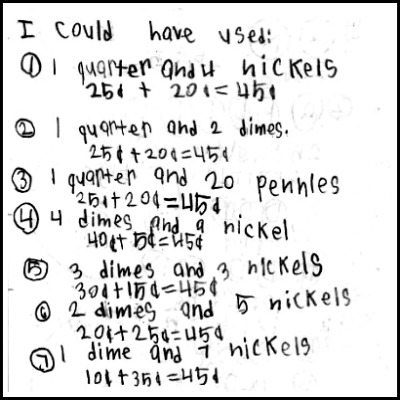 I could have used:
① 1 quarter and 4 nickels
25¢ + 20¢ = 45¢
② 1 quarter and 2 dimes.
25¢+20¢=45¢
③ 1 quarter and 20 pennies
25¢+20¢=45¢
④ 4 dimes and a nickel
40¢+5¢=45¢
⑤ 3 dimes and 3 nickels
30¢+15¢=45¢
⑥ 2 dimes and 5 nickels
20¢+25¢=45¢
⑦ 1 dime and 7 nickels
10¢+35¢=45¢